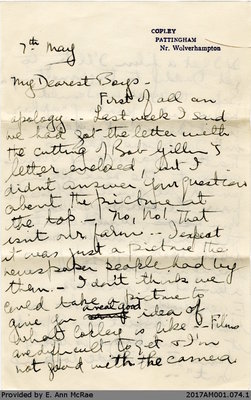 COPLEY
PATTINGHAM
Nr. Wolverhampton
7th May
My Dearest Boys -
First of all an
apology -- Last week I said
we had got the letter with
the cutting of Bob Gillin's
letter enclosed, but I
didnt answer your questions
about the picture at
the top - No, No! That
isnt our farm -- I expect
it was just a picture the
newspaper people had by
them - I don't think we
could take picture to
give you a real good idea of
what Copley is like - Films
are difficult to get & I'm
not good with the camera
Provided by E. Ann McRae
2017AM001.074.1